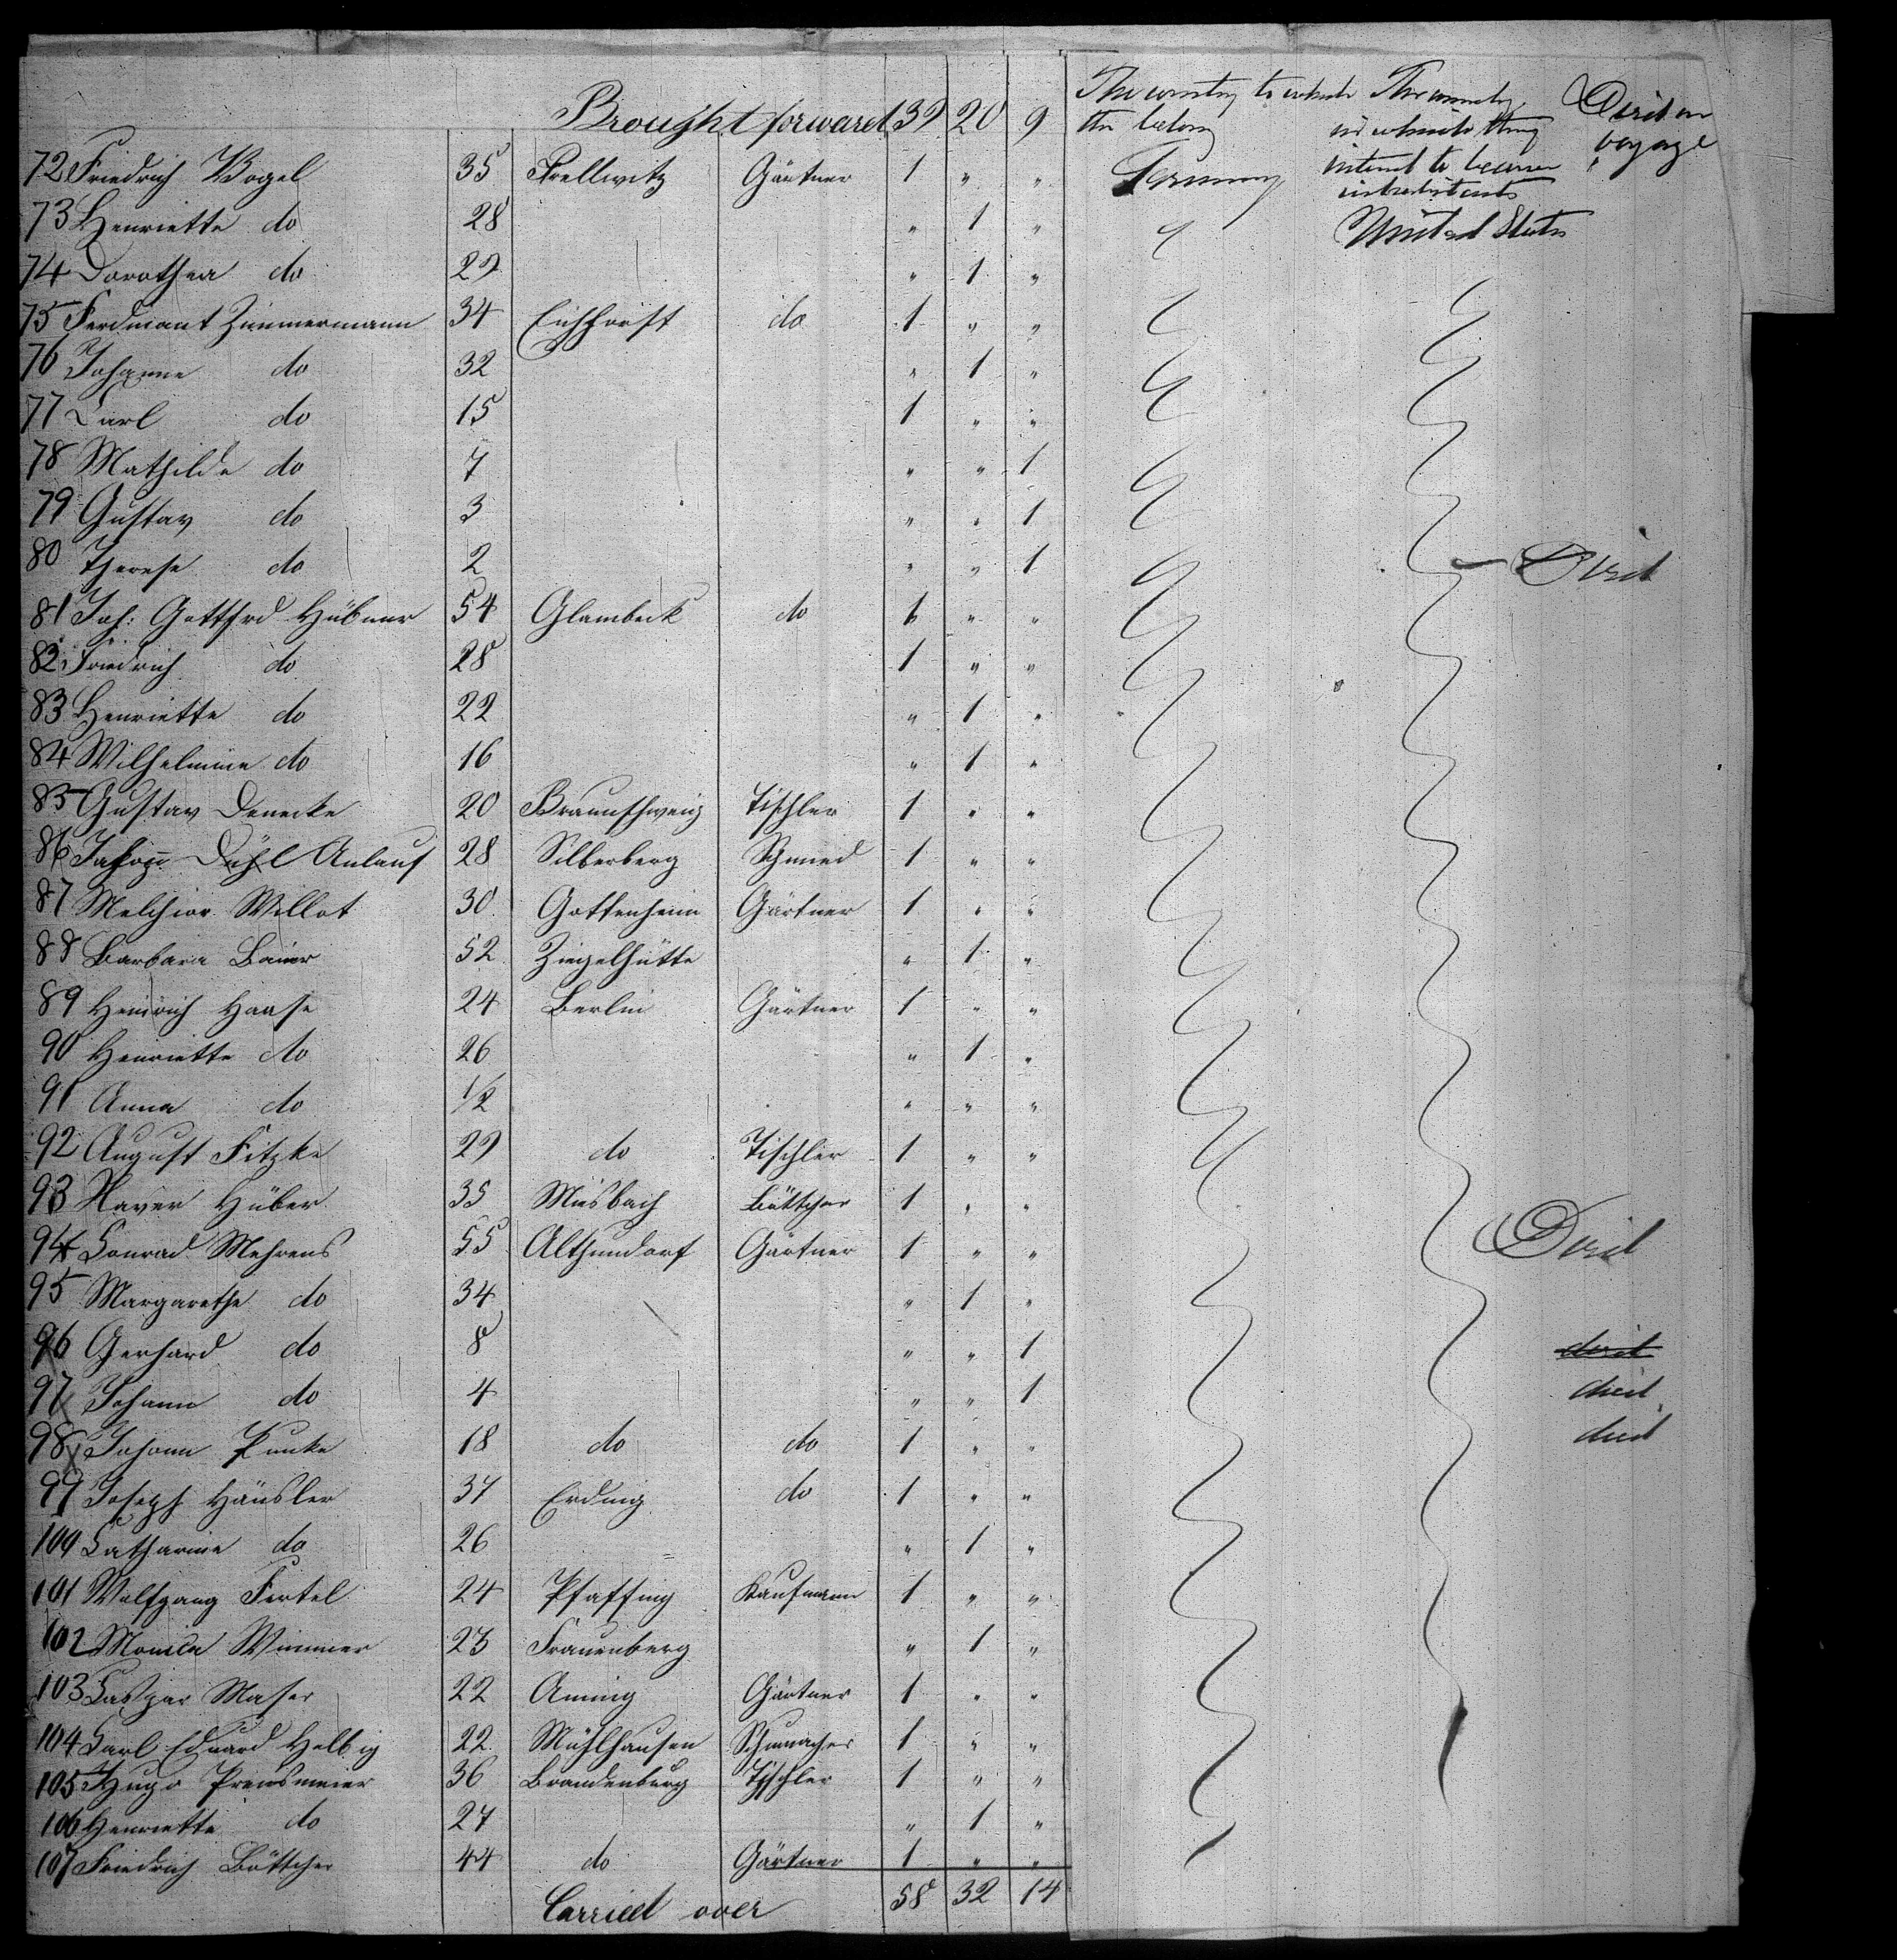 Brought forward 39 20 9 The country to which they belong The country in which they intend to become inhabitants Died on voyage
72 Friedrich Vogel 35 Prellwitz Gärtner 1 " " Germany
73 Henriette do 28 " 1 " United States
74 Dorothea do 29 " 1 "
75 Ferdinant Zimmermann 34 Eichhorst do 1 " "
76 Johanne do 32 " 1 "
77 Carl do 15 1 " "
78 Mathilde do 7 " " 1
79 Gustav do 3 " " 1
80 Therese do 2 " " 1 Died
81 Joh: Gottfrd Hübner 54 Glambeck do 1 " "
82 Friedrich do 28 1 " "
83 Henriette do 22 " 1 "
84 Wilhelmine do 16 " 1 "
85 Gustav Denecke 20 Braunschweig Tischler 1 " "
86 Anlauf 28 Silberberg Schmied 1 " "
87 Melchior Willot 30 Gottenheim Gärtner 1 " "
88 Barbara Baier 52 Ziegelhütte " 1 "
89 Heinrich Haase 24 Berlin Gärtner 1 " "
90 Henriette do 26 " 1 "
91 Anna do 1/2 " " "
92 August Fitzke 29 do Tischler 1 " "
93 Xaver Hüber 35 Miesbach Böttcher 1 " "
94 Conrad Mehrens 55 Althendorf Gärtner 1 " " Died
95 Margarethe do 34 " 1 "
96 Gerhard do 8 " " 1 died
97 Johann do 4 " " 1 died
98 Johann Punke 18 do do 1 " " died
99 Joseph Häusler 37 Erding do 1 " "
100 Catharine do 26 " 1 "
101 Wolfgang Fertel 24 Pfaffing Kaufmann 1 " "
102 Monica Wimmer 23 Frauenberg " 1 "
103 Caspar Maser 22 Aming Gärtner 1 " "
104 Carl Eduard Helbig 22 Mühlhausen Schumacher 1 " "
105 Hugo Preusmeier 36 Brandenburg Tischler 1 " "
106 Henriette do 27 " 1 "
107 Friedrich Böttcher 44 do Gärtner 1 " "
Carried over 58 32 14